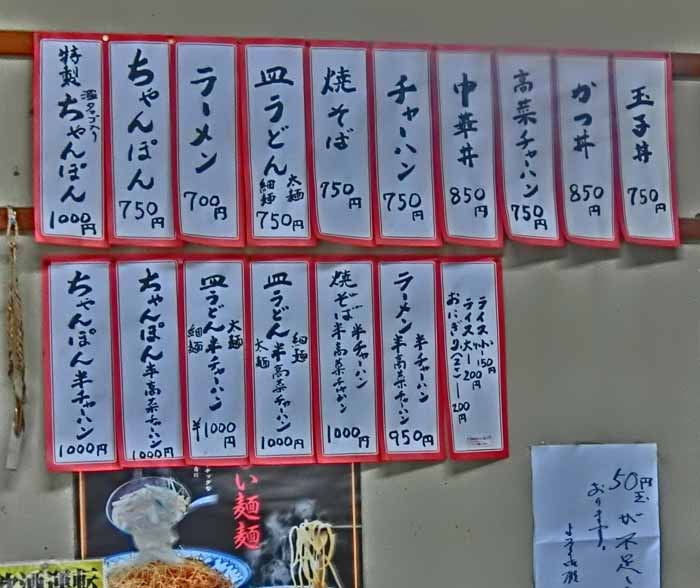 特製ちゃんぽん
1000円
ちゃんぽん
750円
ラーメン
700円
皿うどん
太麺
細麺
750円
焼そば
750円
チャーハン
750円
中華丼
850円
高菜チャーハン
750円
かつ丼
850円
玉子丼
750円
ちゃんぽん半チャーハン
1000円
ちゃんぽん半高菜チャーハン
1000円
皿うどん半チャーハン
太麺
細麺
¥1000円
皿うどん半高菜チャーハン
細麺
太麺
1000円
焼そば
半チャーハン
半高菜チャーハン
1000円
ラーメン
半チャーハン
半高菜チャーハン
950円
ライス小ー150円
ライス大ー200円
おにぎり(2こ)ー200円
い麺麺
50円玉が不足
おります。